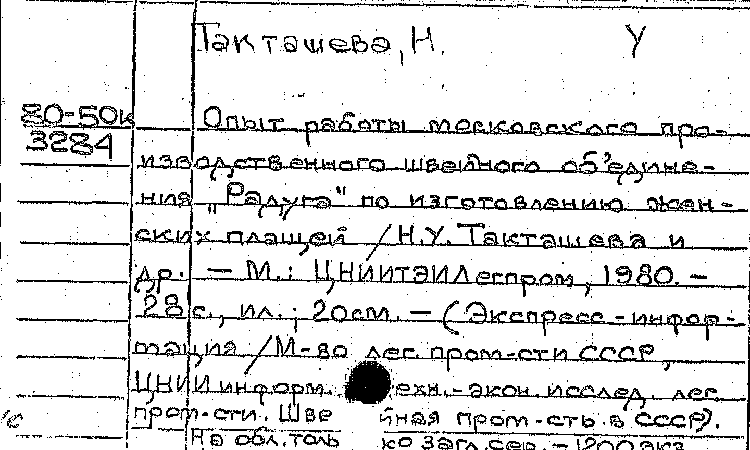 Такташева, Н. У
80-50к
3284
Опыт работы московского про-
изводственного швейного об'едине-
ния „Радуга" по изготовлению жен-
ских плащей / Н.У. Такташева и
др. — М.: ЦНИИТЭИЛегпром, 1980. —
28 с., ил.; 20 см. — (Экспресс-инфор-
мация / М-во лег. пром-сти СССР,
ЦНИИ информ. техн.-экон. исслед. лег.
пром-сти. Шве йная пром-сть в СССР).
На обл. толь ко загл. сер. — 1200 экз.